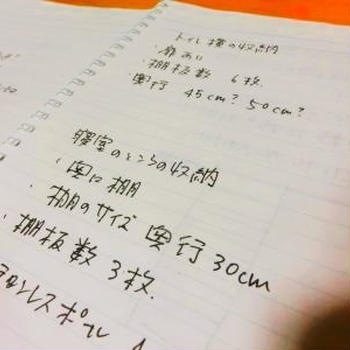 トイレ横の収納
・扉あり
・棚板数 6枚
・奥行 45cm? 50cm?
寝室のところの収納
・奥に棚
・棚のサイズ 奥行30cm
・棚板数 3枚.